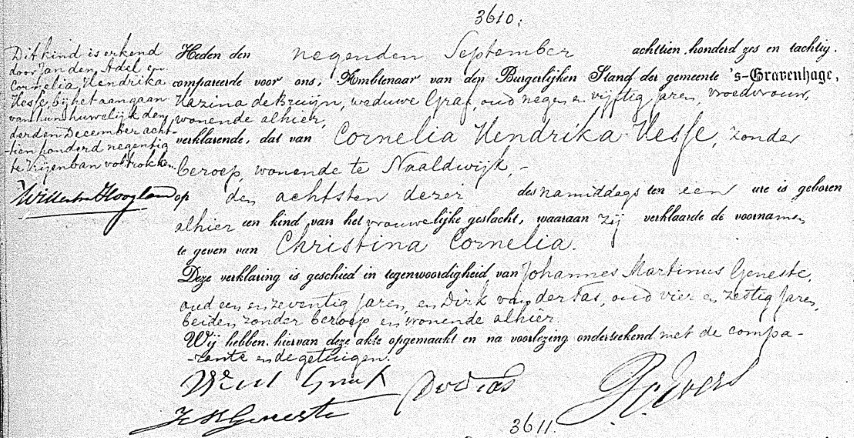 3610.
Dit kind is erkend
door Jan den Adel en
Cornelia Hendrika
Hesse, bij het aangaan
van hun huwelijk den
derden December acht-
tien honderd negentig
te Vrijenban voltrokken.
Willem Hoogland
Heden den negenden September achttien honderd zes en tachtig,
compareerde voor ons, Ambtenaar van den Burgerlijken Stand der gemeente 's-Gravenhage,
Nazina de Bruijn, weduwe Graf, oud negen en vijftig jaren, vroedvrouw,
wonende alhier,
verklarende, dat van Cornelia Hendrika Hesse, zonder
beroep, wonende te Naaldwijk, -
op den achtsten dezer des namiddags ten een ure is geboren
alhier een kind van het vrouwelijke geslacht, waaraan zij verklaarde de voornamen
te geven van Christina Cornelia.
Deze verklaring is geschied in tegenwoordigheid van Johannes Martinus Geneste,
oud een en zeventig jaren, en Dirk van der Tas, oud vier en zestig jaren,
beiden zonder beroep en wonende alhier
Wij hebben hiervan deze akte opgemaakt en na voorlezing onderteekend met de compa-
-rante en de getuigen.
JM Geneste
3611.